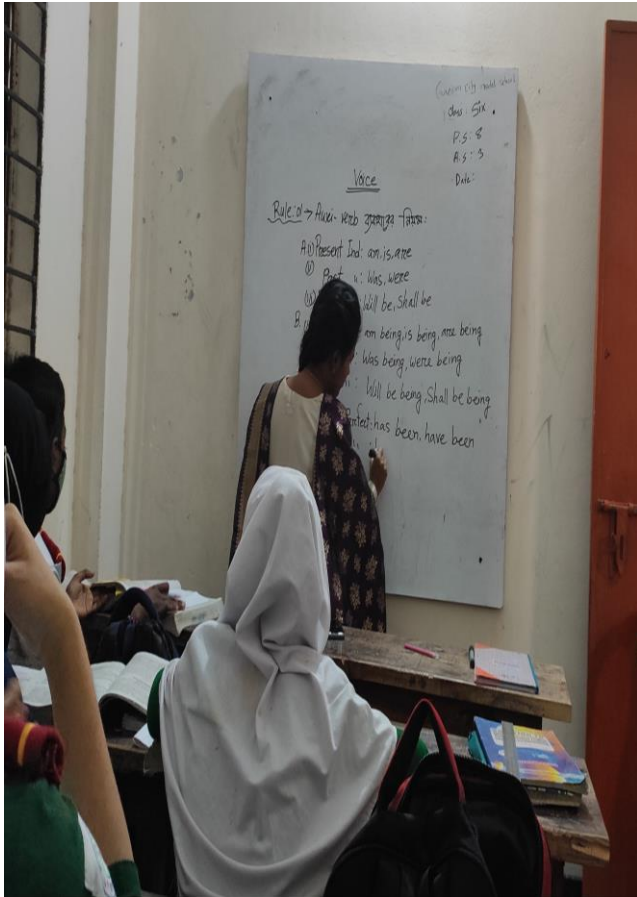 city model school
Class: Six
P.S: 8
A.S: 3
Date:
Voice
Rule: 01 → Auxi- verb ব্যবহারের নিয়ম:
A. (i) Present Ind: am, is, are
(ii) Past " : Was, were
(iii) Will be, Shall be
B. am being, is being, are being
: Was being, were being
" : Will be being, Shall be being
Perfect: has been, have been